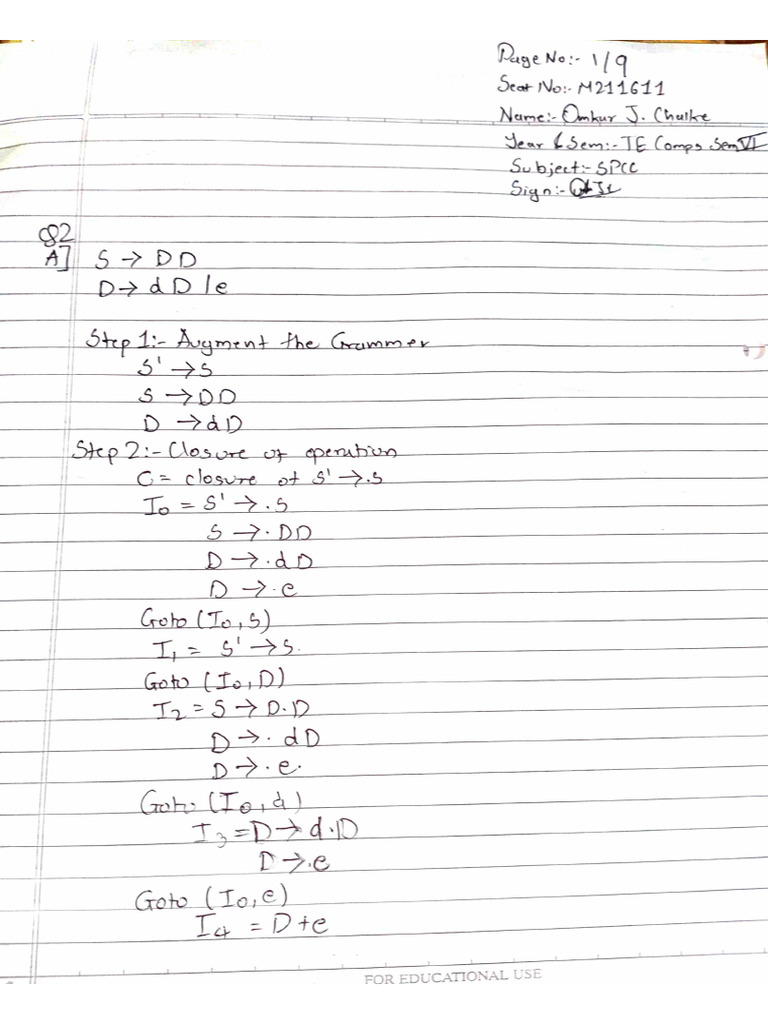 Page No:- 1/9
Seat No:- M211611
Name:- Omkar J. Chalke
Year & Sem:- TE Comps Sem VI
Subject:- SPCC
Sign:-
Q2
A] S → DD
D → dD/e
Step 1:- Augment the Grammer
S' → S
S → DD
D → dD
Step 2:- Closure of operation
C = closure of S' → .S
I0 = S' → .S
S → .DD
D → .dD
D → .e
Goto (I0, S)
I1 = S' → S.
Goto (I0, D)
I2 = S → D.D
D → . dD
D → .e.
Goto (I0, d)
I3 = D → d.D
D → .e
Goto (I0, e)
I4 = D+e
FOR EDUCATIONAL USE